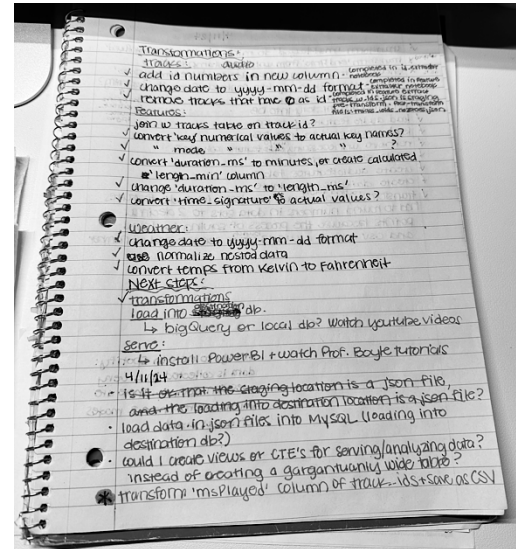 Transformations:
tracks: audio
✓ add id numbers in new column - completed in is extractor notebook
✓ change date to yyyy-mm-dd format - completed in
✓ remove tracks that have 0 as id - tracks_w_ids.json is staging
Features:
✓ join w tracks table on track id?
✓ convert 'key' numerical values to actual key names?
✓ " mode " " " ?
✓ convert 'duration_ms' to minutes, or create calculated
'length_min' column
✓ change 'duration_ms' to 'length_ms'
✓ convert 'time_signature' to actual values?
Weather:
✓ change date to yyyy-mm-dd format
✓ normalize nested data
✓ convert temps from Kelvin to Fahrenheit
Next steps:
✓ transformations
load into destination db.
↳ bigQuery or local db? watch youtube videos
serve:
↳ install PowerBI + watch Prof. Boyle tutorials
4/11/24
• is it ok that the staging location is a json file,
and the loading into destination location is a json file?
• load data in json files into MySQL (loading into
destination db?)
• could I create views or CTE's for serving/analyzing data?
instead of creating a gargantuanly wide table?
* transform 'msPlayed' column of track_ids + save as CSV